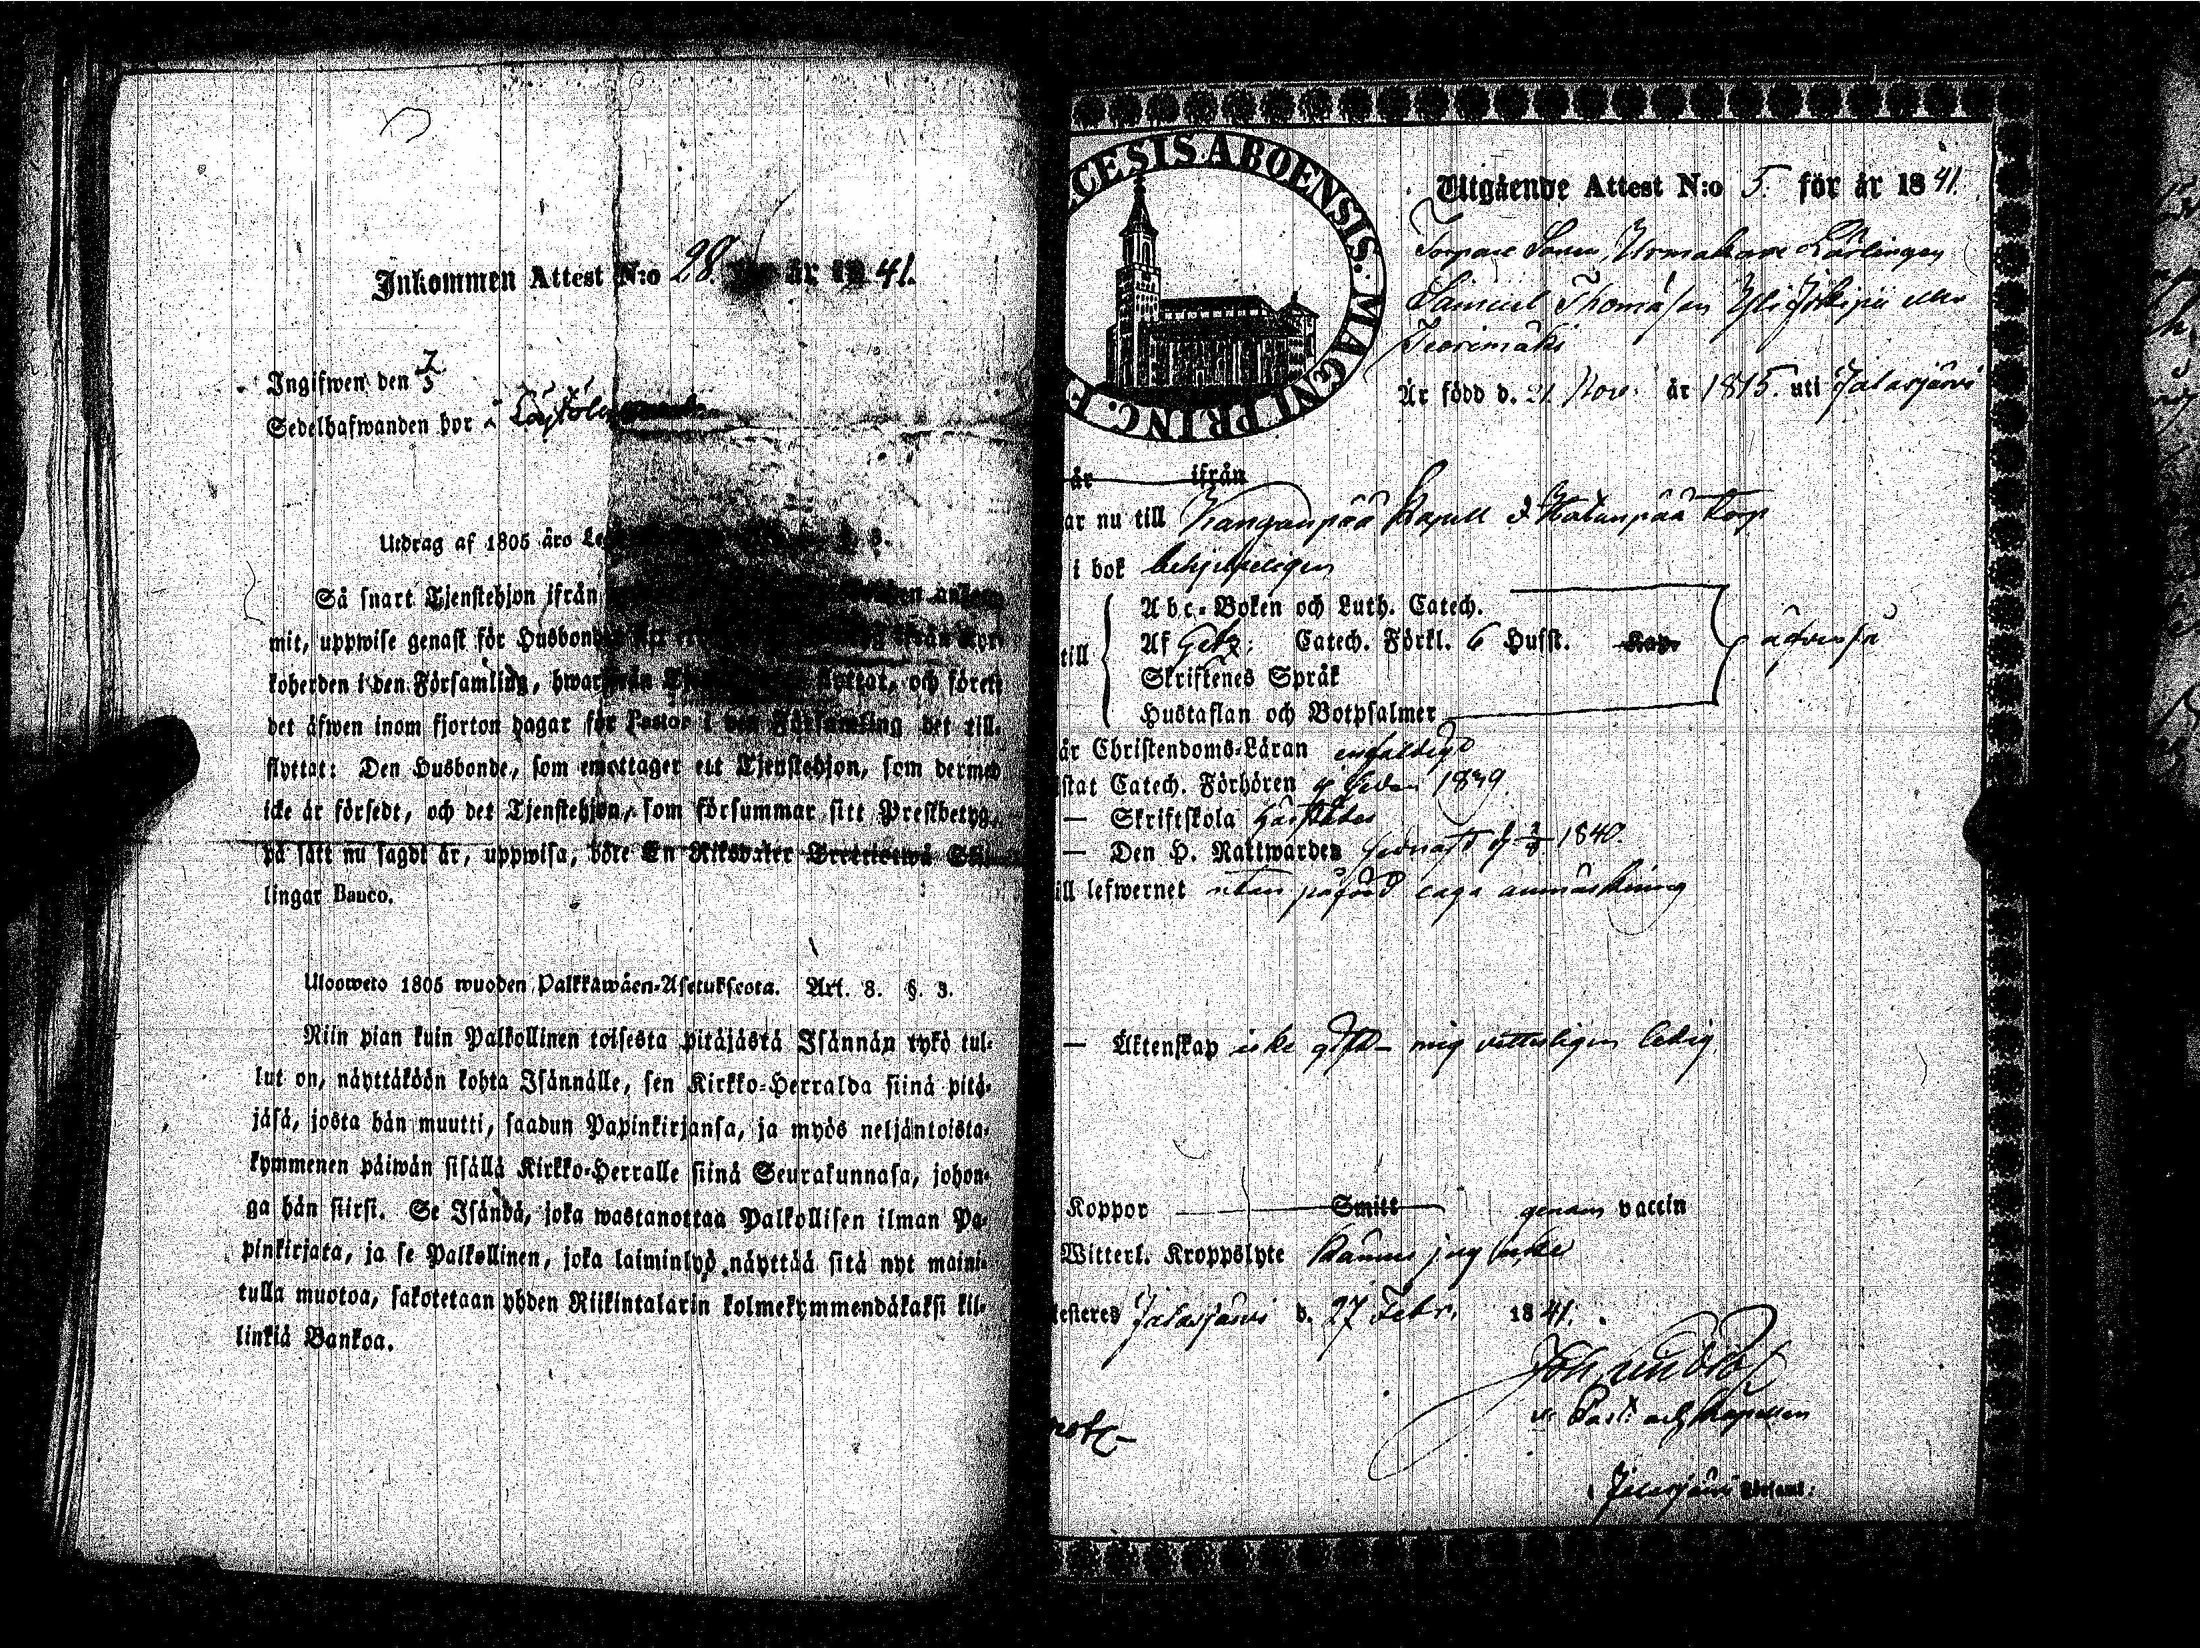 Inkommen Attest N:o 28. för år 1841.
Ingifwen den 7/3
Sedelhafwanden bor
Utdrag af 1805 åro 3.
Så snart Tjenstehjon ifrån
mit, uppwise genast för Husbonden
koherden i den Församling, hwarifrån flyttat, och förete
det äfwen inom fjorton dagar för Pastor i den Församling det till-
flyttat: Den Husbonde, som emottager ett Tjenstehjon, som dermed
icke är försedt, och det Tjenstehjon, som försummar sitt Prestbetyg,
på sätt nu sagdt är, uppwisa, böte En Riksdaler Trettiotwå Skil-
lingar Banco.
Uloosweto 1805 wuoden Palkkawäen-Asetuksesta. Art. 8. §. 3.
Niin pian kuin Palkollinen toisesta pitäjästä Isännän tykö tul-
lut on, näyttäköön kohta Isännälle, sen Kirkko-Herralda siinä pitä-
jäsä, josta hän muutti, saadun Papinkirjansa, ja myös neljäntoista-
kymmenen päiwän sisällä Kirkko-Herralle siinä Seurakunnasa, johon-
ga hän siirsi. Se Isändä, joka wastanottaa Palkollisen ilman Pa-
pinkirjata, ja se Palkollinen, joka laiminlyö näyttää sitä nyt maini-
tulla muotoa, sakotetaan yhden Riikintalarin kolmekymmendäkaksi kil-
linkiä Bankoa.
CESIS ABOENSIS. MAGNI PRINC. F
Utgående Attest N:o 5. för år 1841.
Torpare Sonen, Urmakare Lärlingen
Samuel Thomasson Yli Jokipii eller
Är född d. 21 Nov. år 1815. uti Jalasjärvi
år ifrån
ar nu till Kanganpää Kapell
i bok behjelpeligen
Abc-Boken och Luth. Catech.
till Af Getz: Catech. Förkl. 6 Hufst. Kap. äfvenså
Skriftenes Språk
Hustaflan och Botpsalmer
år Christendoms-Läran enfaldigt
istat Catech. Förhören 1839.
— Skriftskola härstädes
— Den H. Nattwarden sednast 1840.
ill lefwernet utan påförd laga anmärkning
— Äktenskap icke gift – mig vetterligen ledig
Koppor Smitt genom vaccin
Witterl. Kroppslyte känner jag icke
testeres Jalasjärvi d. 27 Febr. 1841.
v. Past. och Kapellan
Jalasjärvi Församl: